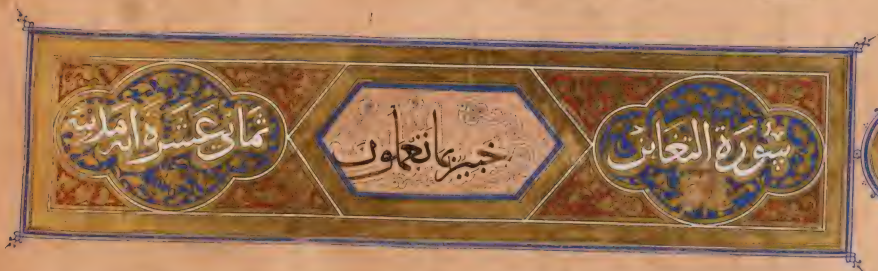 سُورَة التغابن
خبير بما تعملون
ثَمَانِي عَشْرَة آية مَدنية